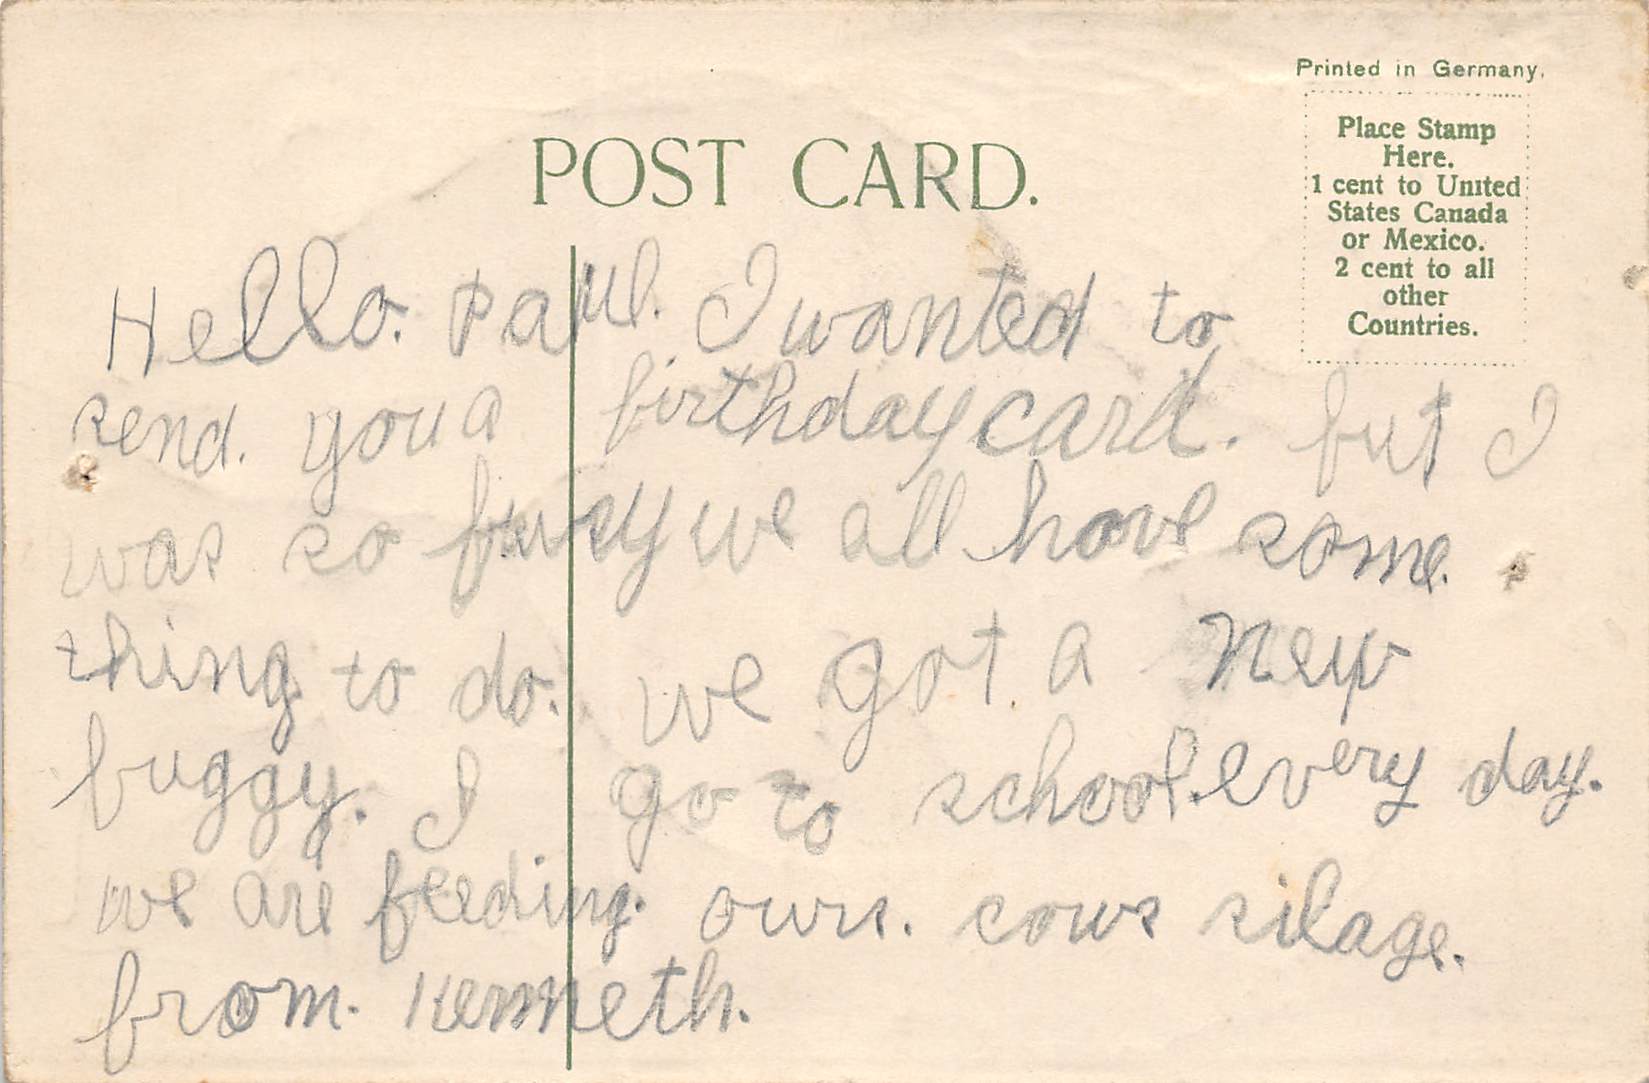 Printed in Germany.
Place Stamp
Here.
1 cent to United
States Canada
or Mexico.
2 cent to all
other
Countries.
POST CARD.
Hello. Paul. I wanted to
send. you a birthday card. but I
was so busy we all have some.
thing to do. we got a new
buggy. I go to school. every day.
we are feeding. ours. cows silage.
from. Kenneth.